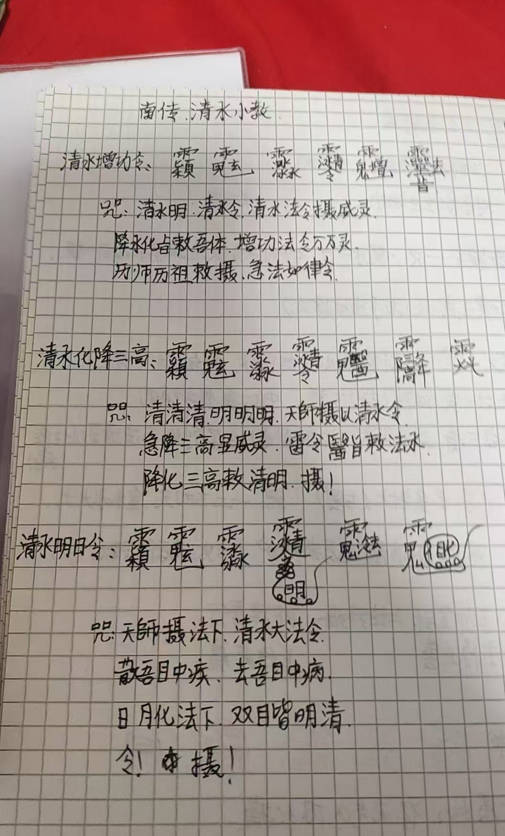 南传.清水小教
清水增功令:
咒:清水明.清水令.清水法令摄威灵.
降水化旨敕吾体.增功法令万万灵.
历师历祖敕摄.急法如律令.
清水化降三高:
咒:清清清.明明明.天師摄以清水令.
急降三高显威灵.雷令醫旨敕法水.
降化三高敕清明.摄!
清水明日令:
咒:天師摄法下.清水大法令.
散吾目中疾.去吾目中病.
日月化法下.双目皆明清.
令!摄!